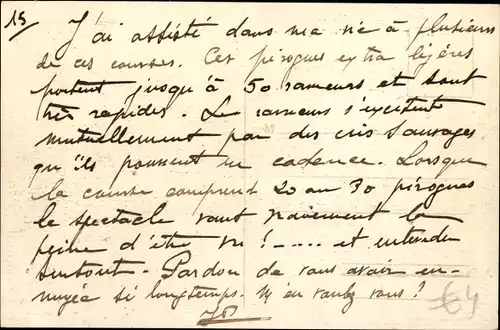 15
J'ai assisté dans ma vie à plusieurs
de ces courses. Ces pirogues extra légères
portent jusqu'à 50 rameurs et sont
très rapides. Les rameurs s'excitent
mutuellement par des cris sauvages
qu'ils poussent en cadence. Lorsque
la course comprend 20 ou 30 pirogues
le spectacle vaut vraiement la
peine d'être vu !..... et entendu
surtout. Pardon de vous avoir en-
nuyée si longtemps. M'en voulez vous ?
64